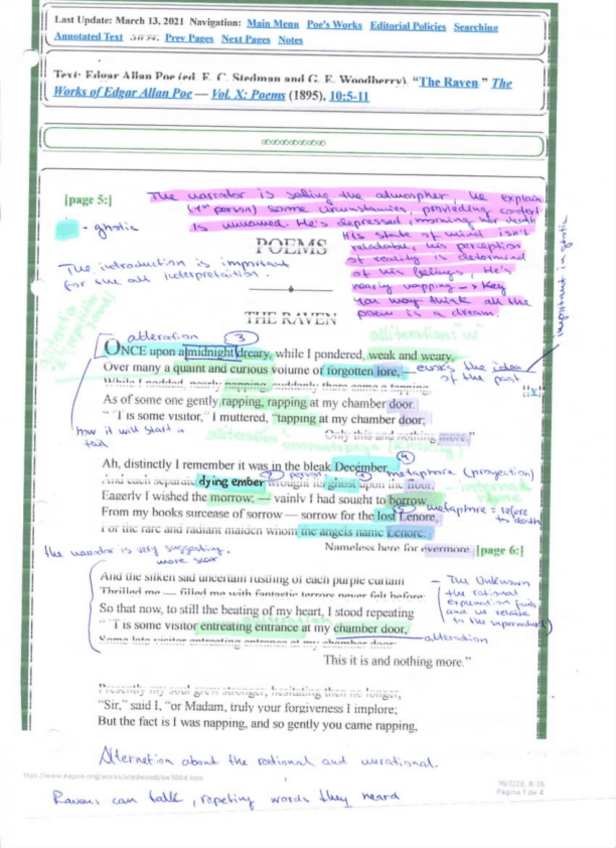 Last Update: March 13, 2021 Navigation: Main Menu Poe's Works Editorial Policies Searching
Annotated Text Prev Pages Next Pages Notes
Text: Edgar Allan Poe (ed. E. C. Stedman and G. E. Woodberry), "The Raven," The
Works of Edgar Allan Poe — Vol. X: Poems (1895), 10:5-11
[page 5:]
The narrator is setting the atmospher. He explain
(1st person) some circumstancies, providering context
Is unnamed. He's depressed, morning her death
His state of mind isn't
relatable, his perception
of reality is determind
of his feelings, He's
nearly napping -> Key
You may think all the
poem is a dream
- ghotic
The introduction is important
for the all interpretaition.
important in ghotic
POEMS
THE RAVEN
alliteration: "w"
alteration
3
ONCE upon a midnight dreary, while I pondered, weak and weary,
Over many a quaint and curious volume of forgotten lore,
evoks the idea
of the past
While I nodded, nearly napping, suddenly there came a tapping,
As of some one gently rapping, rapping at my chamber door.
"'T is some visitor," I muttered, "tapping at my chamber door;
Only this and nothing more."
how it will start a
tail
Ah, distinctly I remember it was in the bleak December,
4
And each separate dying ember wrought its ghost upon the floor.
metaphore (proyection)
Eagerly I wished the morrow; — vainly I had sought to borrow
From my books surcease of sorrow — sorrow for the lost Lenore,
metaphore = refere
to death
For the rare and radiant maiden whom the angels name Lenore:
Nameless here for evermore. [page 6:]
the narrator is very suggesting.
more scar
And the silken sad uncertain rustling of each purple curtain
Thrilled me — filled me with fantastic terrors never felt before;
So that now, to still the beating of my heart, I stood repeating
"'T is some visitor entreating entrance at my chamber door,
alteration
Some late visitor entreating entrance at my chamber door:
This it is and nothing more."
- The Unknown
the rational
and we
to the supernatural
Presently my soul grew stronger; hesitating then no longer,
"Sir," said I, "or Madam, truly your forgiveness I implore;
But the fact is I was napping, and so gently you came rapping,
Alternation about the rational and unrational.
16/2/23, 8:35
Página 1 de 4
Ravens can talk, repeting words they heard